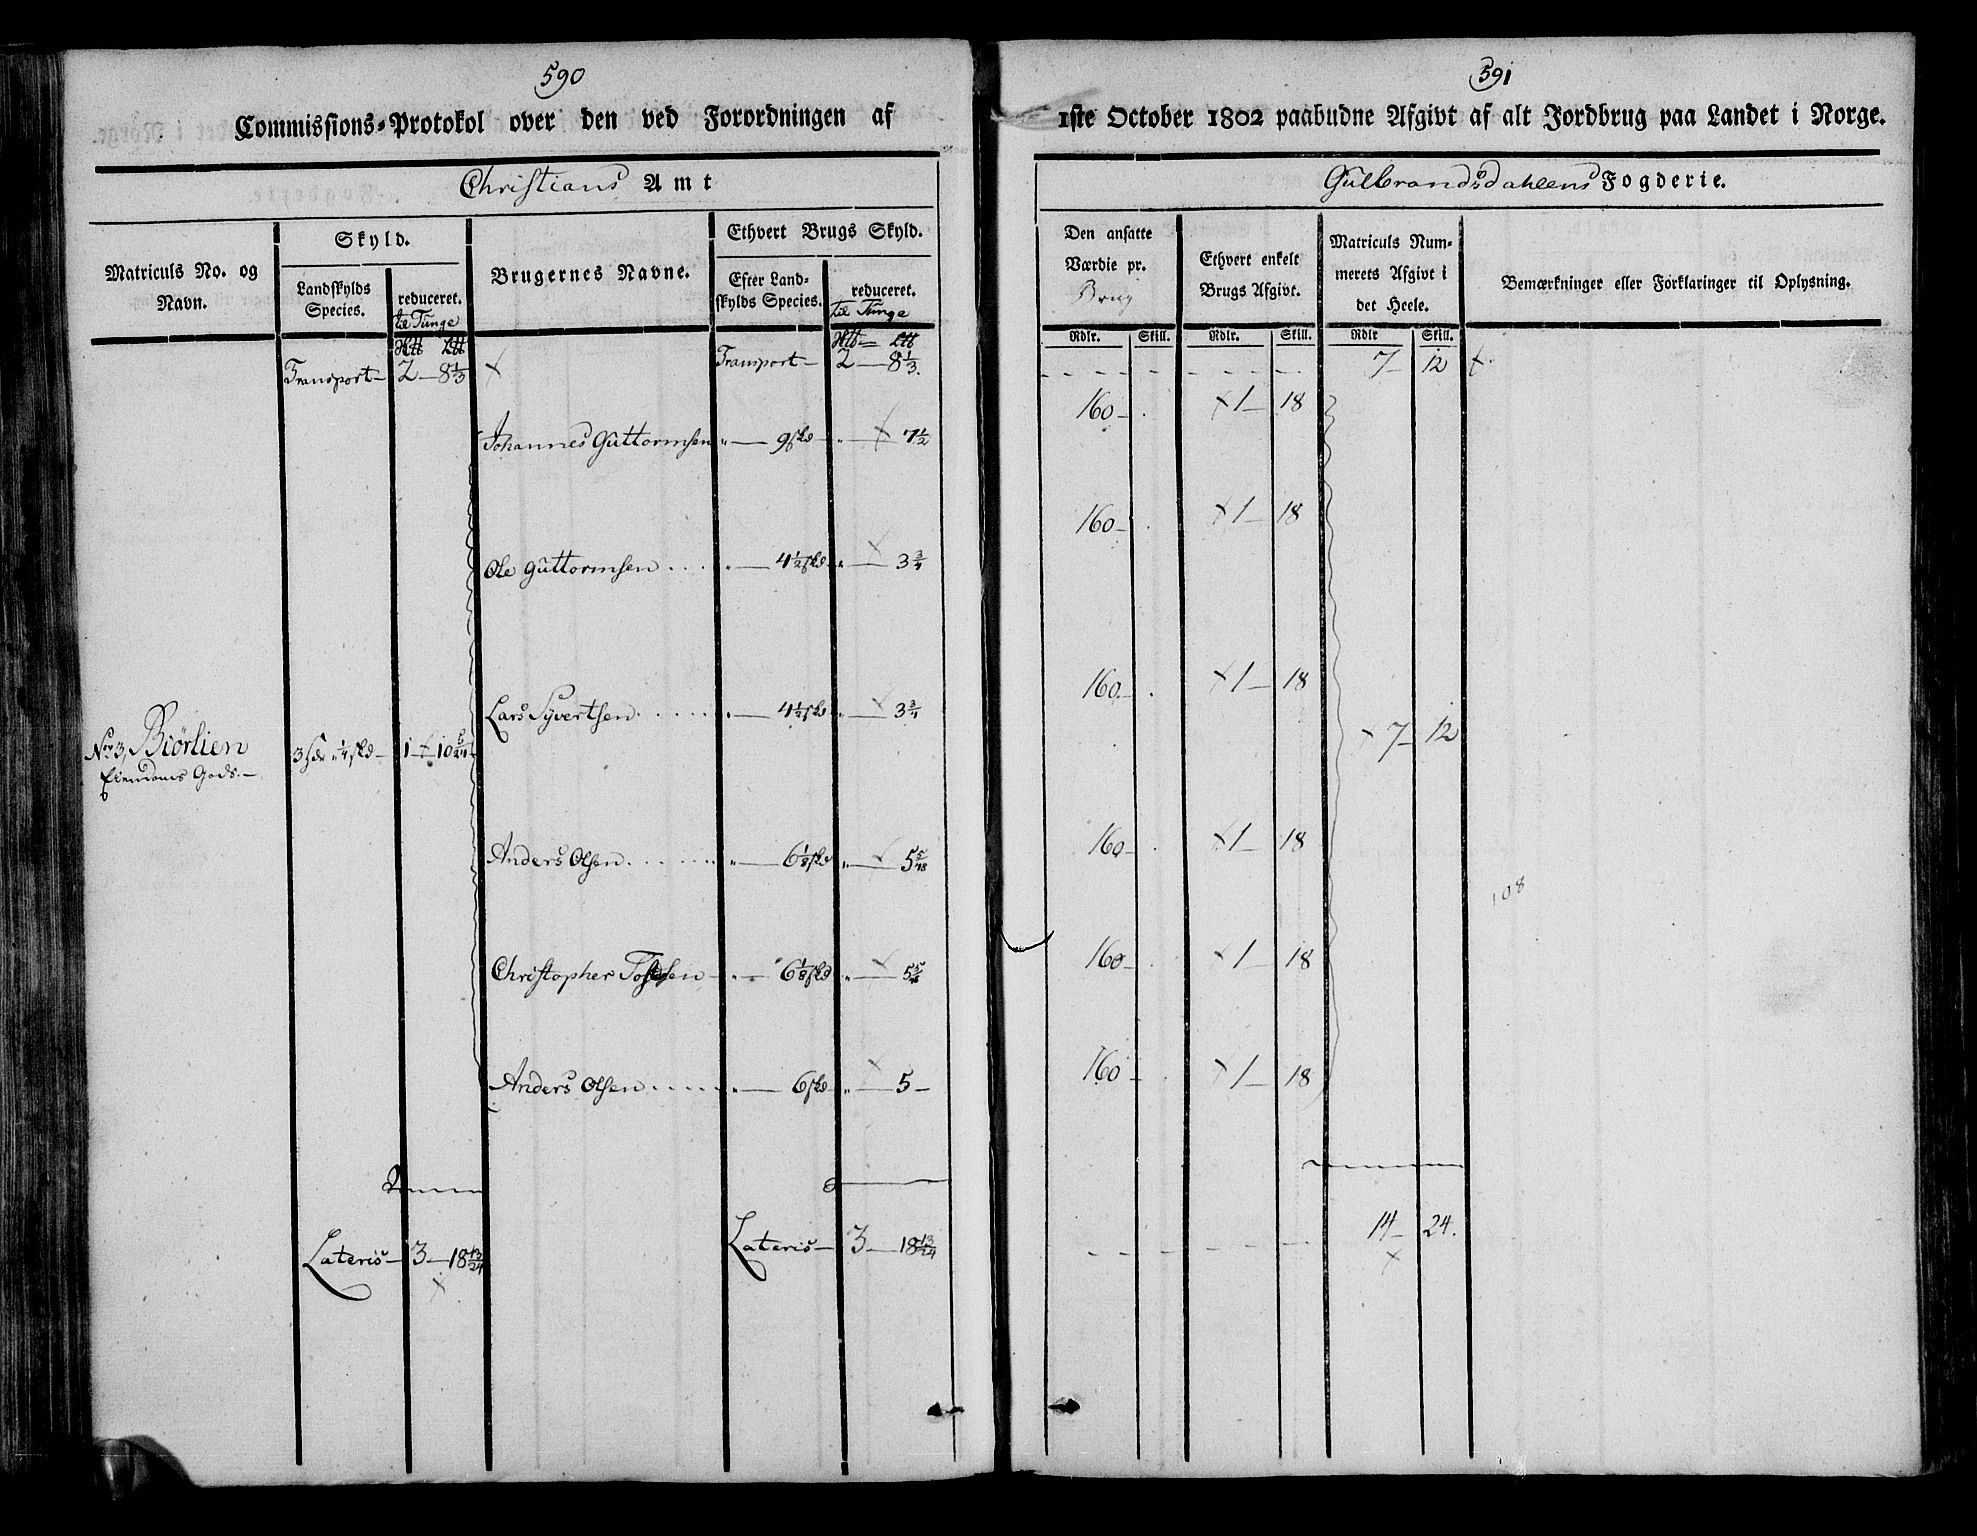 590
Commissions-Protokol over den ved Forordningen af
Christians Amt
Matriculs No. og Navn.
Skyld.
Landskylds Species.
reduceret. til Tunge
Brugernes Navne.
Ethvert Brugs Skyld.
Efter Landskylds Species.
reduceret. til Tunge
Transport — 2 — 8 1/3
Transport — 2 — 8 1/3.
Johannes Guttormsen " — 9 skd " — 7 1/2
Ole Guttormsen . . . . " — 4 1/2 skd " — 3 3/4
Lars Syvertsen . . . . . . " — 4 1/2 skd " — 3 3/4
No. 3, Biørlien
Eiendoms Gods. —
1 — 10 5/24
Anders Olsen . . . . . . . " — 6 1/8 skd " — 5 5/48
Christopher — " — 6 1/8 skd " — 5 5/48
Anders Olsen . . . . . " — 6 skd " — 5 —
Lateris — 3 — 18 13/24
Lateris — 3 — 18 13/24
591
1ste October 1802 paabudne Afgivt af alt Jordbrug paa Landet i Norge.
Gulbrandsdahlens Fogderie.
Den ansatte Værdie pr. Brug
Ethvert enkelt Brugs Afgivt.
Matriculs Nummerets Afgivt i det Heele.
Bemærkninger eller Forklaringer til Oplysning.
Rdlr. Skill. Rdlr. Skill. Rdlr Skill.
7 — 12
160 — . 1 — 18
160 — . 1 — 18
160 — . 1 — 18
7 — 12
160 — . 1 — 18
108
160 — . 1 — 18
160 — . 1 — 18
14 — 24.